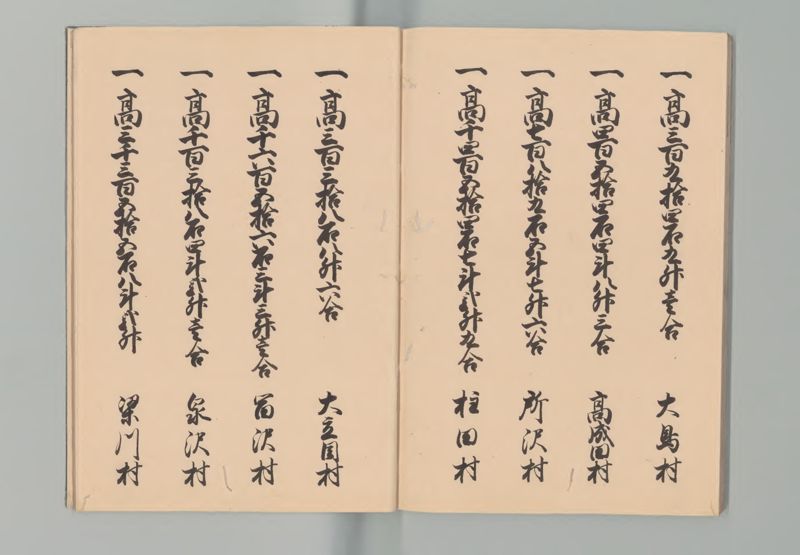 一高三百九拾四石九升壱合 大島村
一高四百五拾四石四斗八升三合 高成田村
一高七百八拾九石五斗七升六合 所沢村
一高千四百五拾四石七斗弐升九合 柱田村
一高三百三拾八石八升六合 大立目村
一高千六百五拾六石三斗三升壱合 富沢村
一高千百三拾八石四斗弐升壱合 泉沢村
一高三千三百五拾五石八斗弐升 梁川村